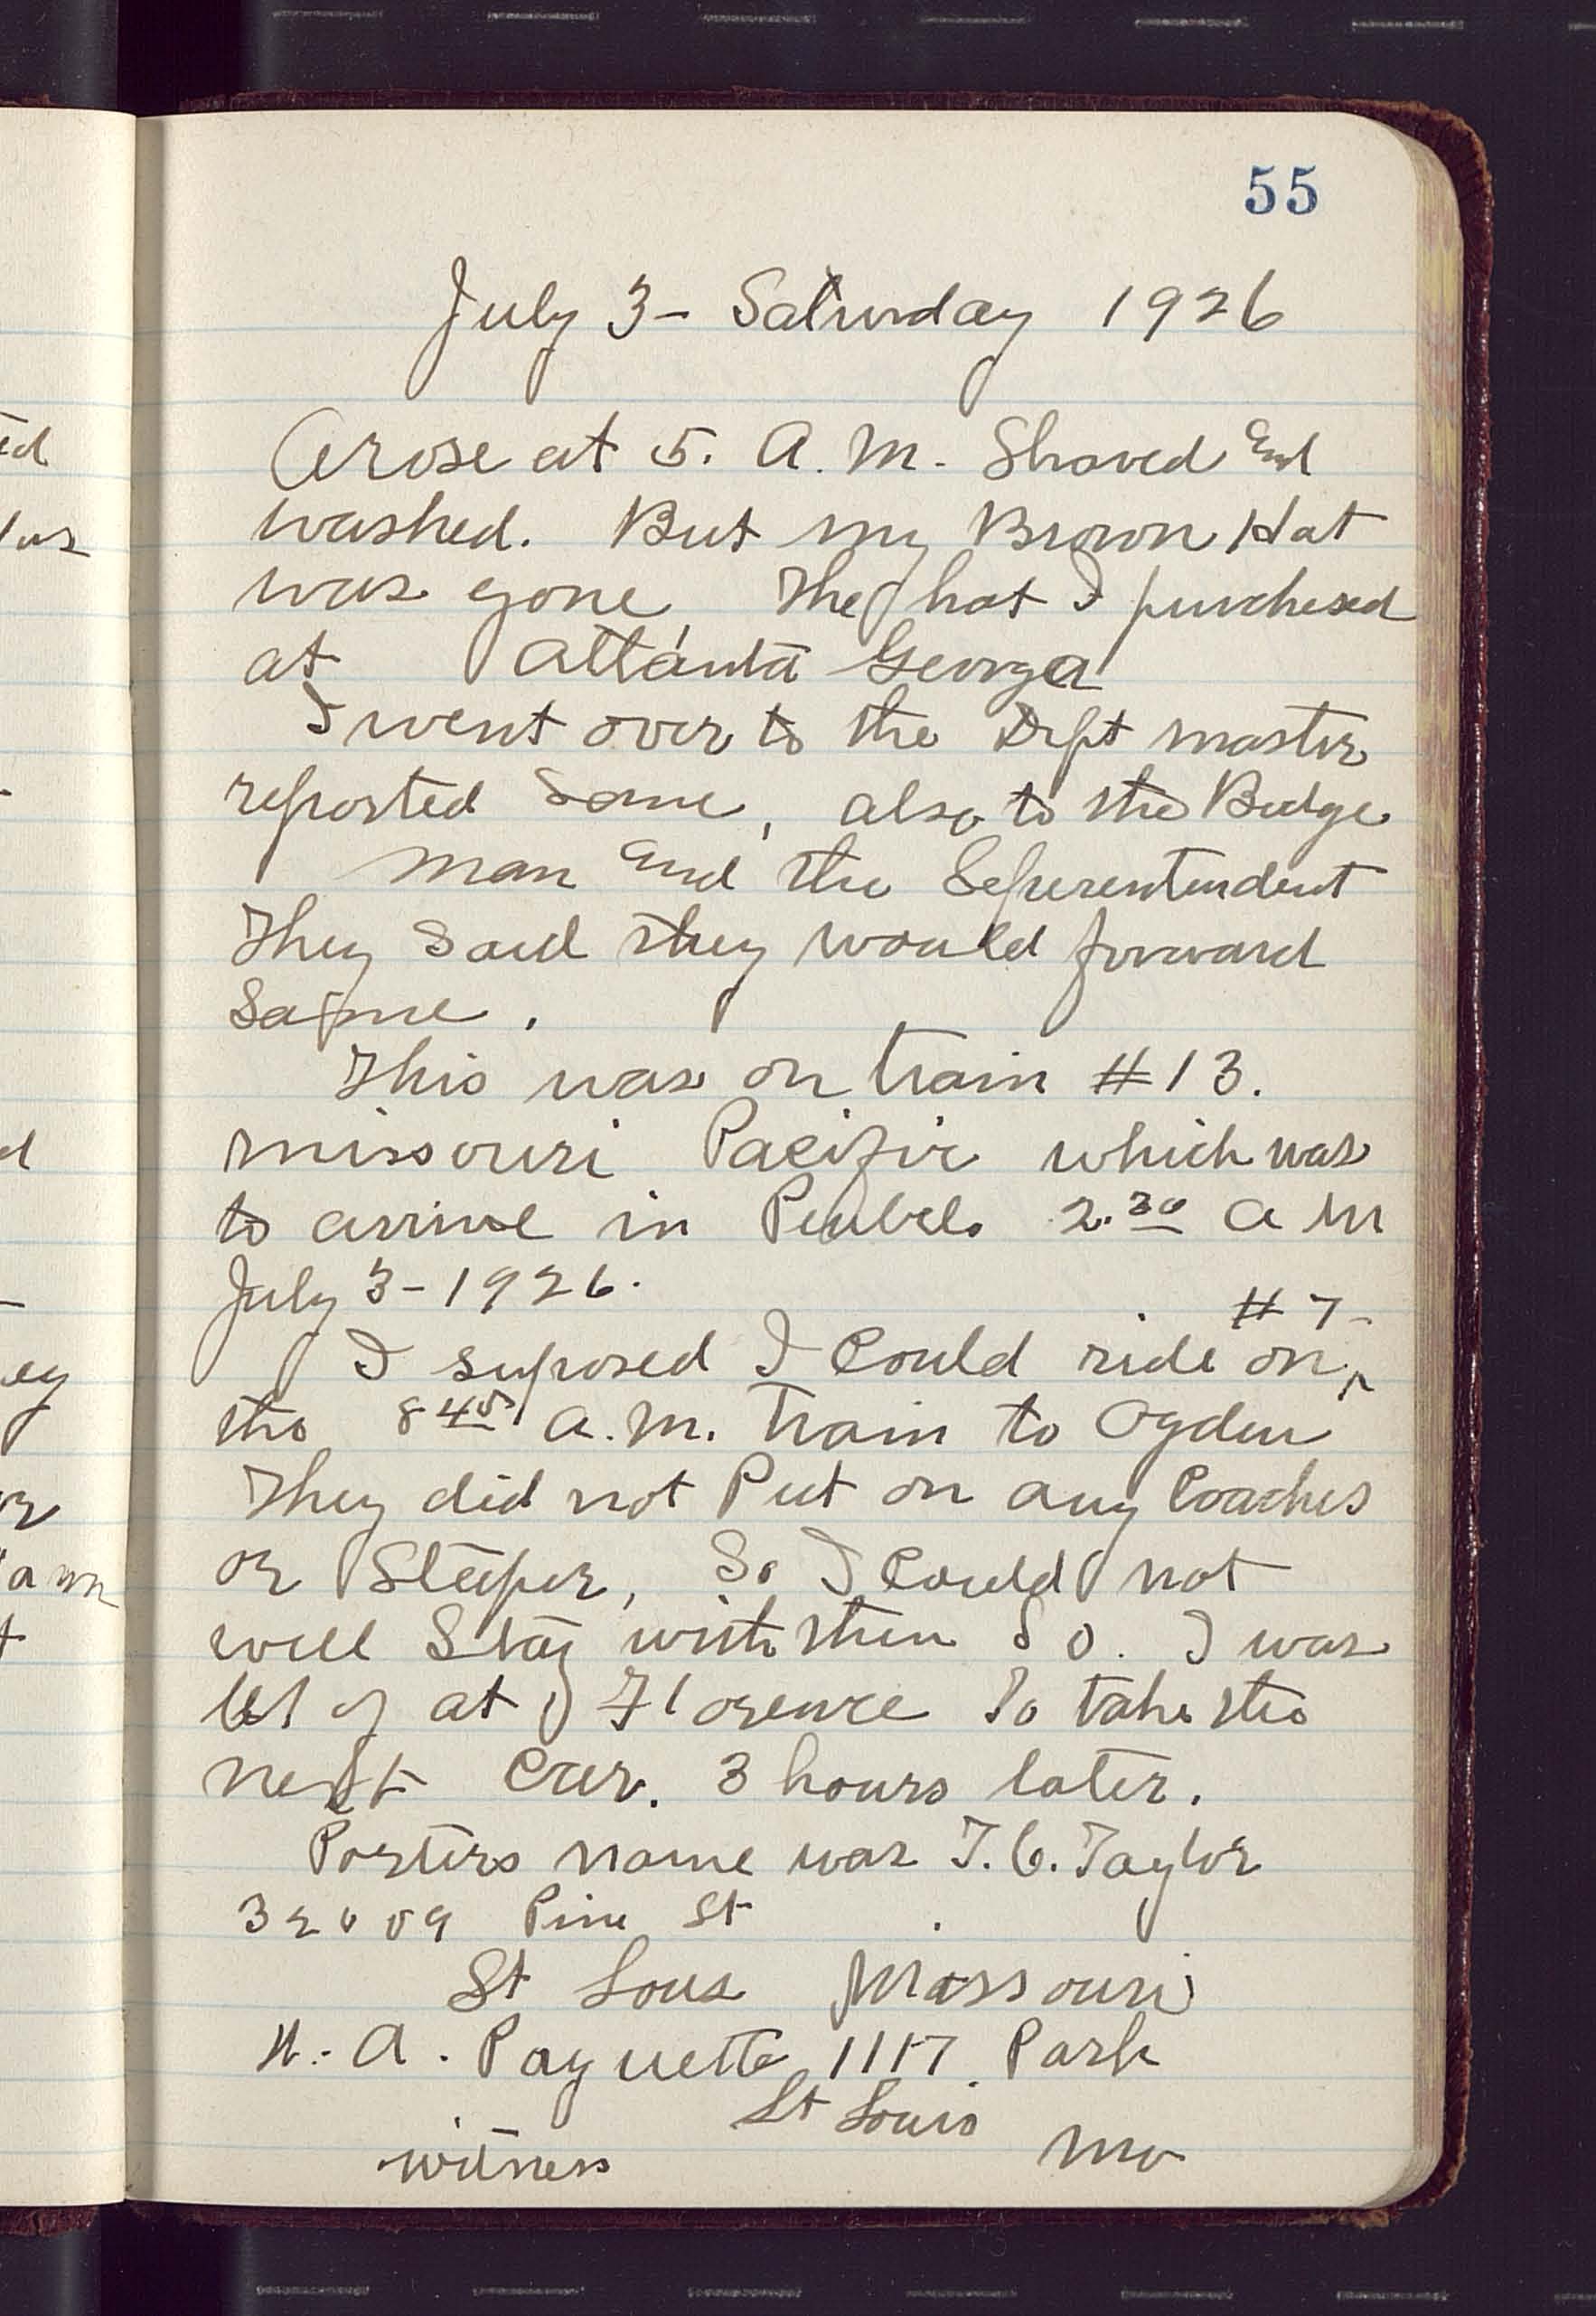 55
July 3- Saturday 1926
Arose at 5. A. M. Shaved and
washed. But my Brown Hat
was gone, The hat I purchesed
at Atlanta Georga
I went over to the Dept master
reported same, also to the Budge
man and the Seperentendent
They said they would forward
same.
This was on train #13.
Missouri Pacific which was
to arrive in Peublo 2.30 A M
July 3-1926.
#7-
I suposed I Could ride on
the 845 A.M. train to Ogden
They did not Put on any Coaches
or Sleeper, So I Could not
well Stay with them So. I was
let of at Florence To take the
next Car. 3 hours later.
Porters name was T. C. Taylor
Pine St
St Lous Missouri
A. Paquette 1117 Park
St Louis
Mo
witness
ed
d
ey